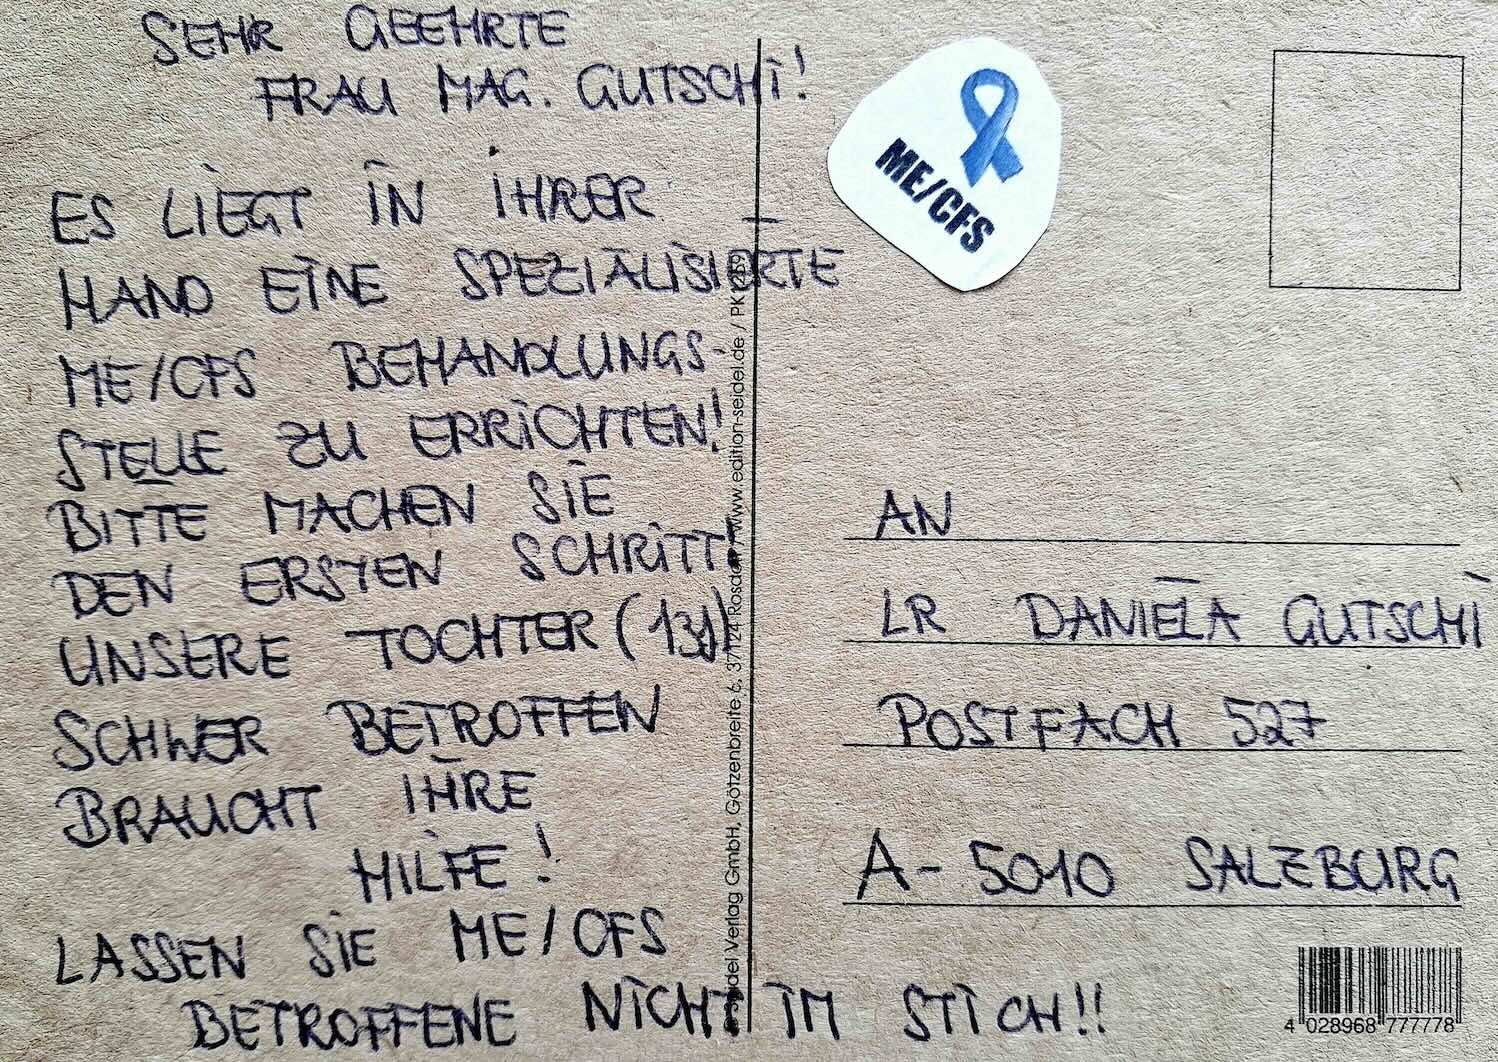 SEHR GEEHRTE
FRAU MAG. GUTSCHI!
ES LIEGT IN IHRER
HAND EINE SPEZIALISIERTE
ME/CFS BEHANDLUNGS-
STELLE ZU ERRICHTEN!
BITTE MACHEN SIE
DEN ERSTEN SCHRITT!
UNSERE TOCHTER (13J)
SCHWER BETROFFEN
BRAUCHT IHRE
HILFE!
LASSEN SIE ME/CFS
BETROFFENE NICHT IM STICH!!
Seidel Verlag GmbH, Götzenbreite 6, 37124 Rosdorf / www.edition-seidel.de / PK
ME/CFS
AN
LR DANIELA GUTSCHI
POSTFACH 527
A-5010 SALZBURG
4 028968 777778